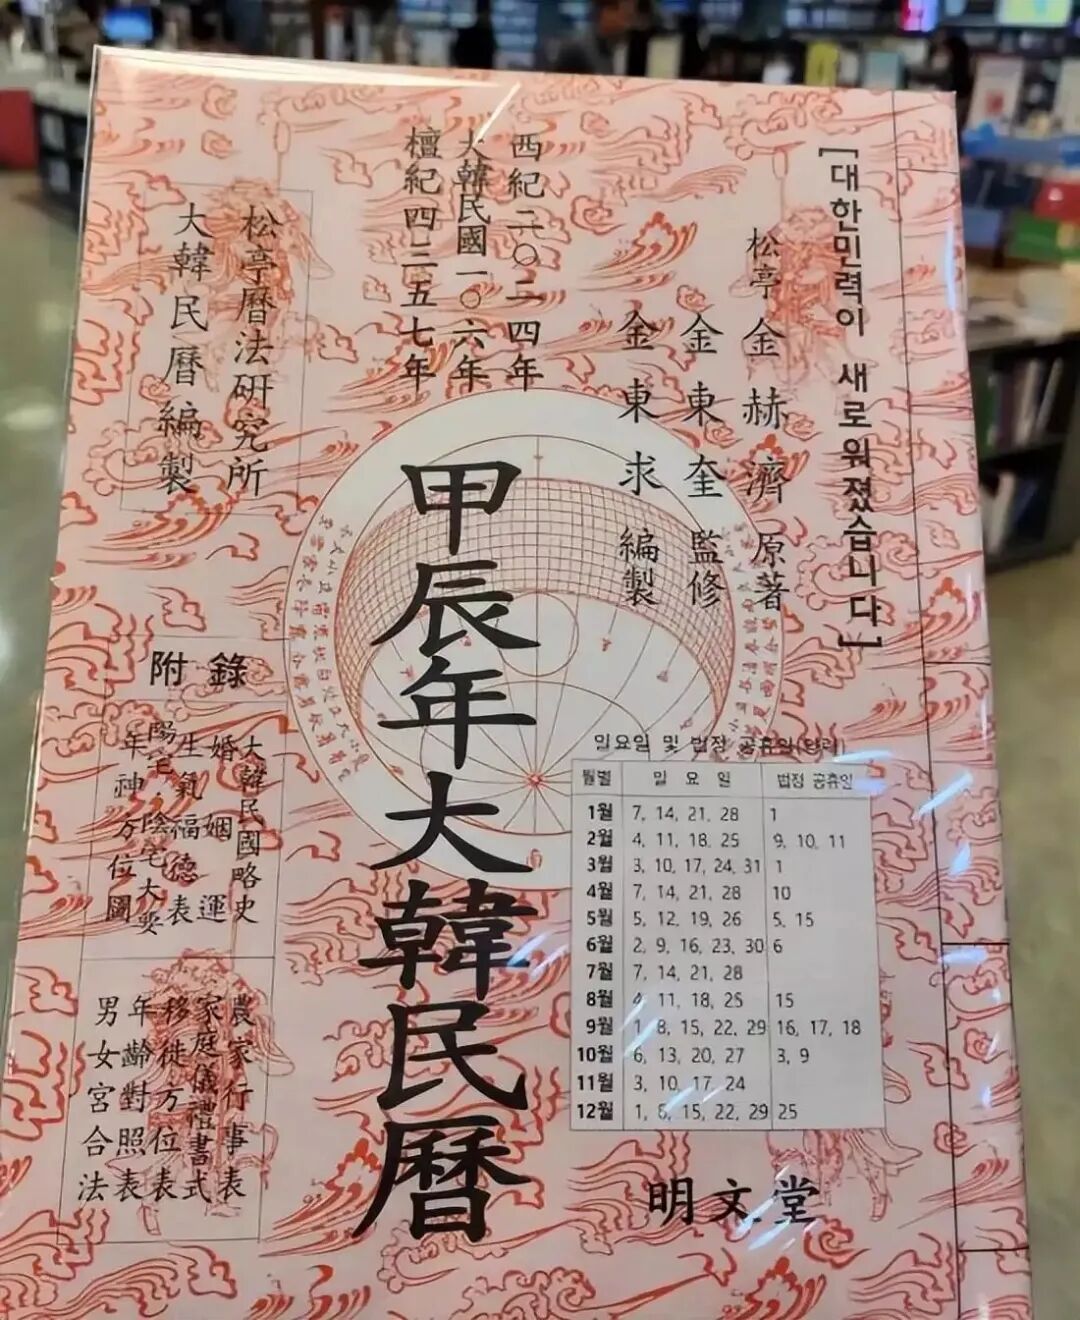 [대한민력이 새로워졌습니다]
松亭 金赫濟 原著
金東奎 監修
金東求 編製
西紀二〇二四年
大韓民國一〇六年
檀紀四三五七年
松亭曆法研究所
大韓民曆編製
甲辰年大韓民曆
附錄
大韓民國略史
婚姻運
生氣福德表
陽宅,陰宅大要
年神方位圖
農家行事表
家庭儀禮書式
移徙方位表
年齡對照表
男女宮合法
일요일 및 법정 공휴일(양력)
月별 일요일 법정 공휴일
1월 7, 14, 21, 28 1
2월 4, 11, 18, 25 9, 10, 11
3월 3, 10, 17, 24, 31 1
4월 7, 14, 21, 28 10
5월 5, 12, 19, 26 5, 15
6월 2, 9, 16, 23, 30 6
7월 7, 14, 21, 28
8월 4, 11, 18, 25 15
9월 1, 8, 15, 22, 29 16, 17, 18
10월 6, 13, 20, 27 3, 9
11월 3, 10, 17, 24
12월 1, 8, 15, 22, 29 25
明文堂